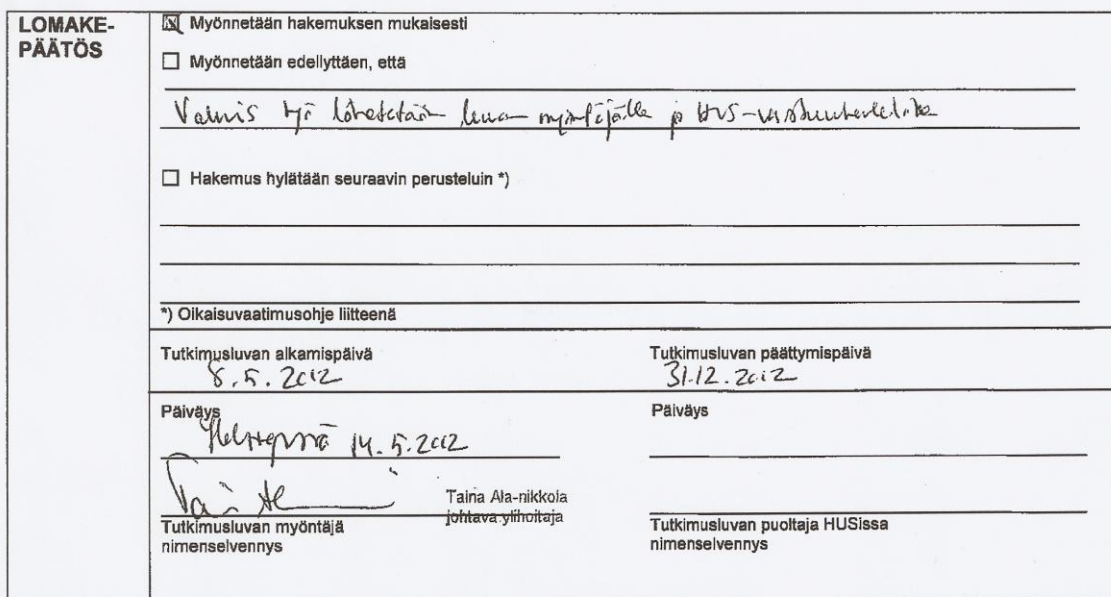 LOMAKE-
PÄÄTÖS
☒ Myönnetään hakemuksen mukaisesti
☐ Myönnetään edellyttäen, että
Valmis työ lähetetään luvan myöntäjälle ja HUS-vastuuhenkilölle
☐ Hakemus hylätään seuraavin perusteluin *)
*) Oikaisuvaatimusohje liitteenä
Tutkimusluvan alkamispäivä
8.5.2012
Tutkimusluvan päättymispäivä
31.12.2012
Päiväys
Helsingissä 14.5.2012
Päiväys
Taina Ala-nikkola
johtava ylihoitaja
Tutkimusluvan myöntäjä
nimenselvennys
Tutkimusluvan puoltaja HUSissa
nimenselvennys